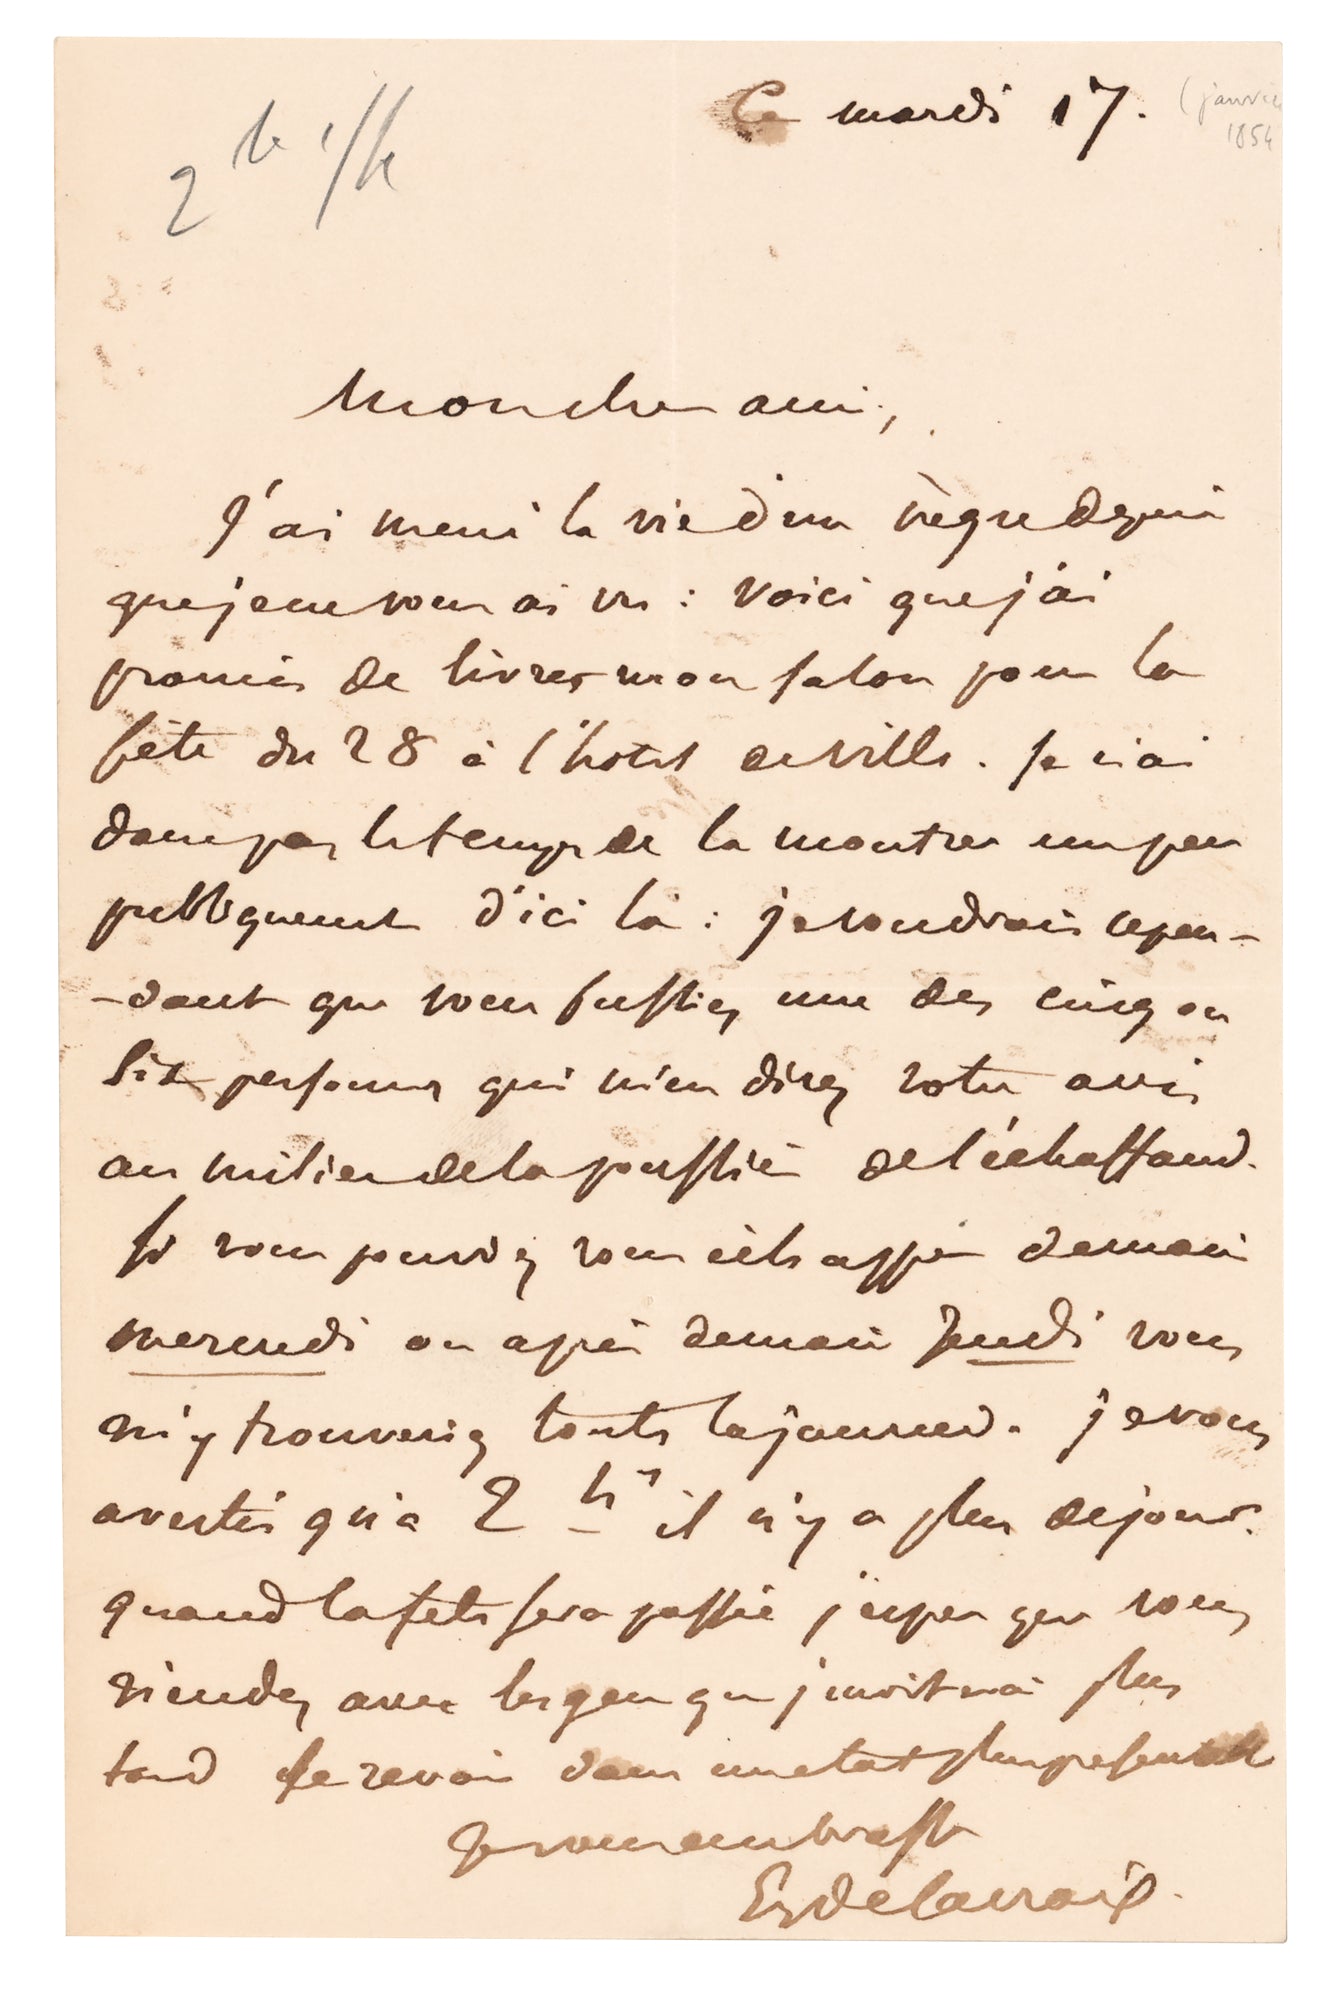 Ce mardi 17.
(janvier
1854
2 h 1/2
Mon cher ami,
J'ai mené la vie d'un nègre depuis
que je ne vous ai vu : voici que j'ai
promis de livrer mon salon pour la
fête du 28 à l'hotel de ville. Je n'ai
donc pas le temps de la montrer un peu
publiquement d'ici là : je voudrais cepen-
-dant que vous fussiez une des cinq ou
six personnes qui m'en direz votre avis
au milieu de la poussière de l'échaffaud.
Si vous pouviez vous échapper demain
mercredi ou après demain Jeudi vous
m'y trouveriez toute la journée. je vous
avertis qu'à 2 hres il n'y a plus de jour.
quand la fête sera passée j'espère que vous
viendrez avec les gens que j'inviterai plus
tard le revoir dans un etat plus présentable
Je vous embrasse
Eug Delacroix.